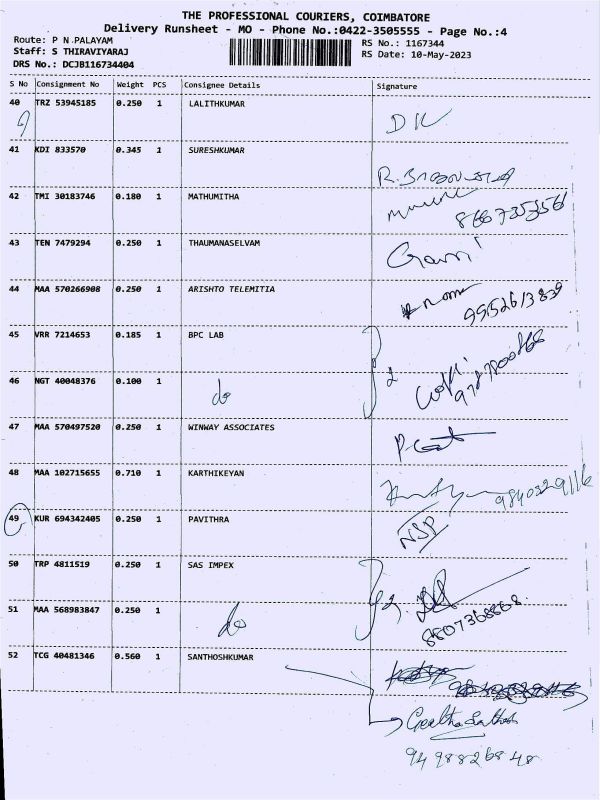 THE PROFESSIONAL COURIERS, COIMBATORE
Delivery Runsheet - MO - Phone No.:0422-3505555 - Page No.:4
Route: P N PALAYAM
Staff: S THIRAVIYARAJ
DRS No.: DCJB116734404
RS No.: 1167344
RS Date: 10-May-2023
S No Consignment No Weight PCS Consignee Details Signature
40 TRZ 53945185 0.250 1 LALITHKUMAR DK
41 KDI 833570 0.345 1 SURESHKUMAR
42 TMI 30183746 0.180 1 MATHUMITHA
43 TEN 7479294 0.250 1 THAUMANASELVAM
44 MAA 570266908 0.250 1 ARISHTO TELEMITIA 9952613839
45 VRR 7214653 0.185 1 BPC LAB
46 NGT 40048376 0.100 1 do 2
47 MAA 570497520 0.250 1 WINWAY ASSOCIATES
48 MAA 102715655 0.710 1 KARTHIKEYAN 9840329116
49 KUR 694342405 0.250 1 PAVITHRA NSP
50 TRP 4811519 0.250 1 SAS IMPEX
51 MAA 568983847 0.250 1 do 2 8807368868
52 TCG 40481346 0.560 1 SANTHOSHKUMAR
Geetha Santhosh
9498826848